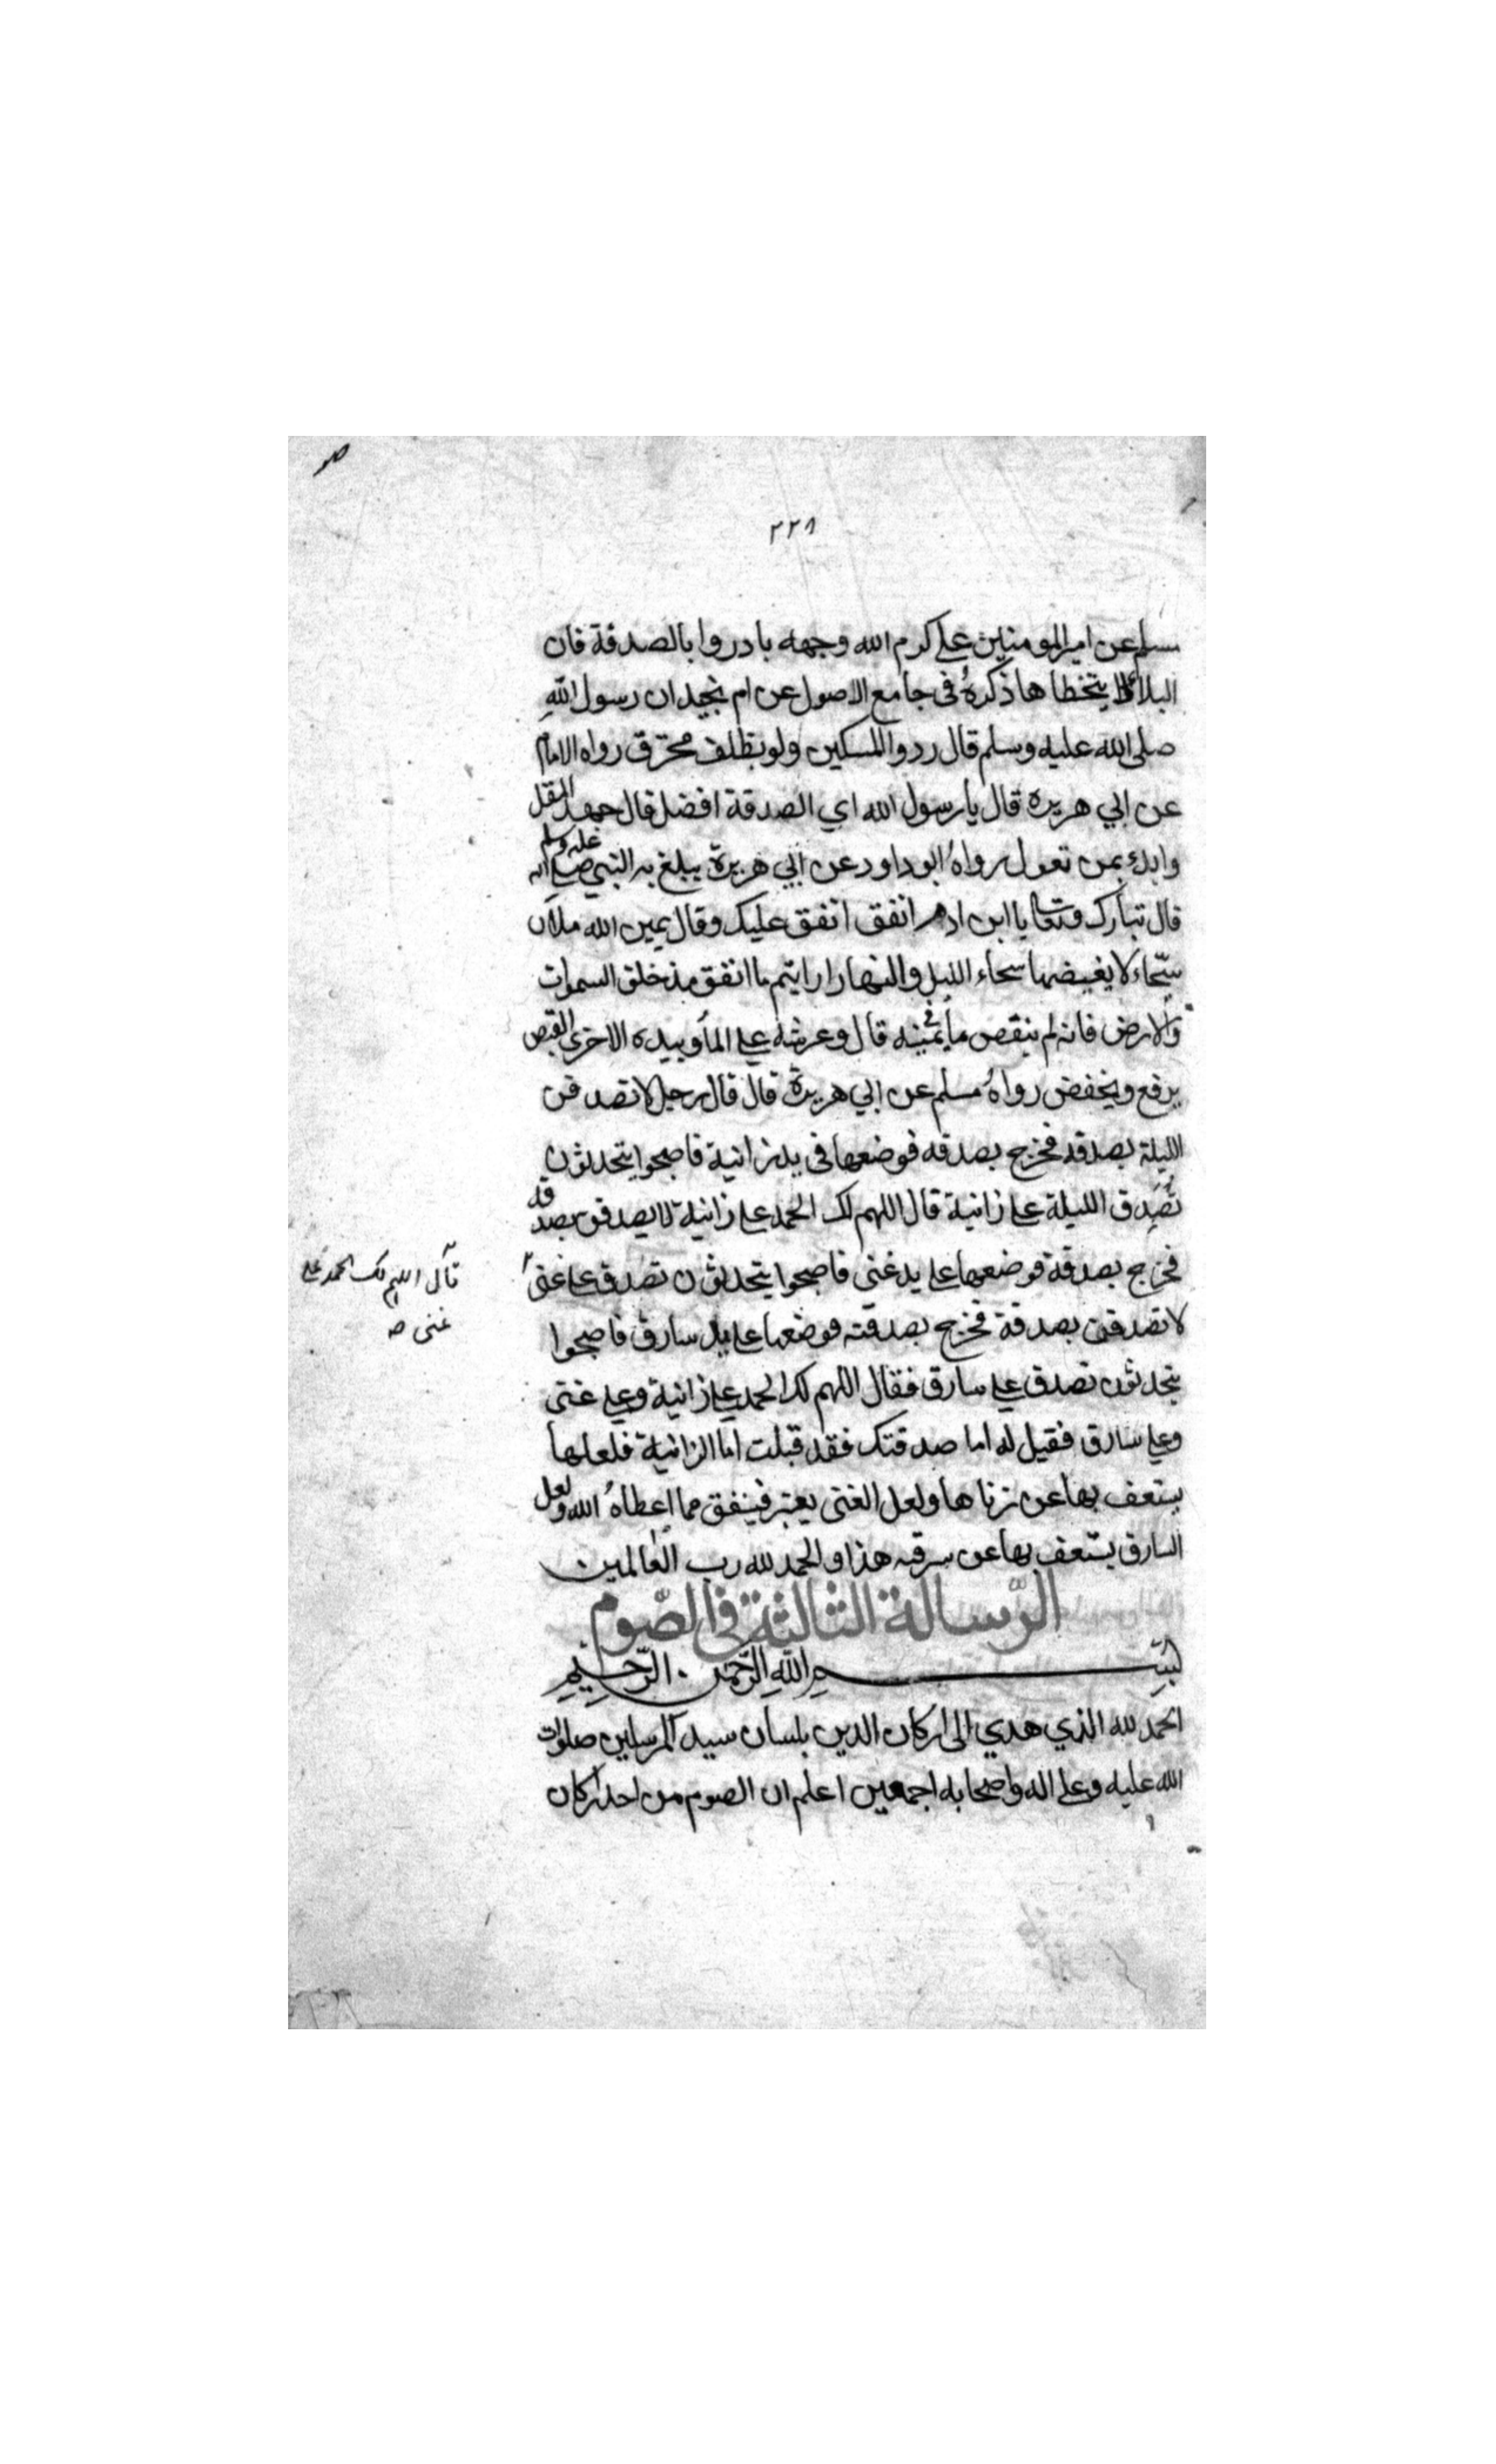 ٢٢٨
مسلم عن امير المومنين علي كرم الله وجهه بادروا بالصدقة فان
البلاء لا يتخطاها ذكره في جامع الاصول عن ام بجيد ان رسول الله
صلى الله عليه وسلم قال ردوا المسكين ولو بظلف محترق رواه الامام
عن ابي هريرة قال يا رسول الله اي الصدقة افضل قال جهد المقل
وابدء بمن تعول رواه ابو داود عن ابي هريرة يبلغ به النبي صلى الله عليه وسلم
قال تبارك وتعالى يا ابن ادم انفق انفق عليك وقال يمين الله ملان
سحاء لا يغيضها سحاء الليل والنهار ارايتم ما انفق مذ خلق السموات
والارض فانه لم ينقص ما في يمينه قال وعرشه على الماء وبيده الاخرى القبض
يرفع ويخفض رواه مسلم عن ابي هريرة قال قال رجل لاتصدقن
الليلة بصدقة فخرج بصدقه فوضعها في يد زانية فاصبحوا يتحدثون
تصدق الليلة على زانية قال اللهم لك الحمد على زانية لاتصدقن بصدقة
فخرج بصدقة فوضعها على يد غنى فاصبحوا يتحدثون تصدق على غنى
قال اللهم لك الحمد على
غنى صه
لاتصدقن بصدقة فخرج بصدقته فوضعها على يد سارق فاصبحوا
يتحدثون تصدق على سارق فقال اللهم لك الحمد على زانية وعلى غنى
وعلى سارق فقيل له اما صدقتك فقد قبلت اما الزانية فلعلها
يستعف بها عن زناها ولعل الغنى يعتبر فينفق مما اعطاه الله ولعل
السارق يستعف بها عن سرقه هذا والحمد لله رب العالمين
الرسالة الثالثة في الصوم
بسم الله الرحمن الرحيم
الحمد لله الذي هدي الى اركان الدين بلسان سيد المرسلين صلوات
الله عليه وعلى اله واصحابه اجمعين اعلم ان الصوم من احد اركان